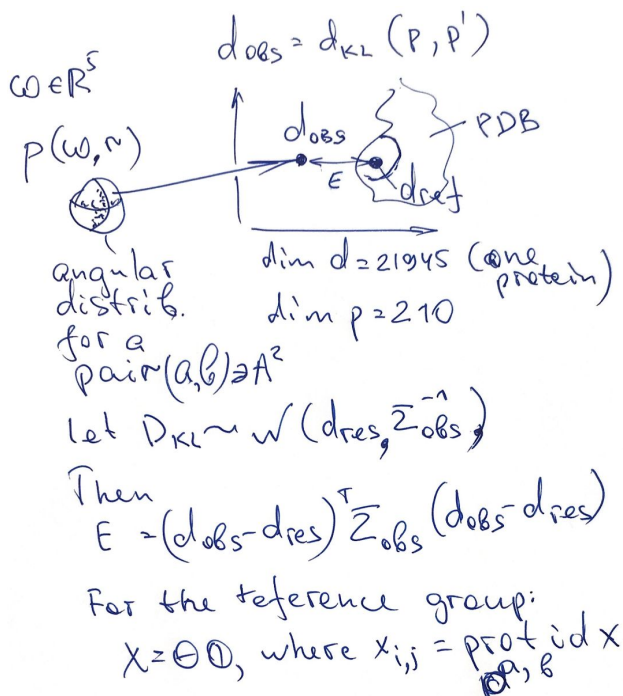 d_OBS = d_KL (P, P')
ω ∈ R^5
P(ω, r)
d_OBS
PDB
E
d_ref
angular
distrib.
for a
pair (a, b) ∋ A^2
dim d = 21945 (one
protein)
dim p = 210
let D_KL ~ W (d_res, Σ_obs^-1)
Then
E = (d_obs - d_res)^T Σ_obs (d_obs - d_res)
For the reference group:
X = Θ Φ, where x_i,j = prot id x
a, b